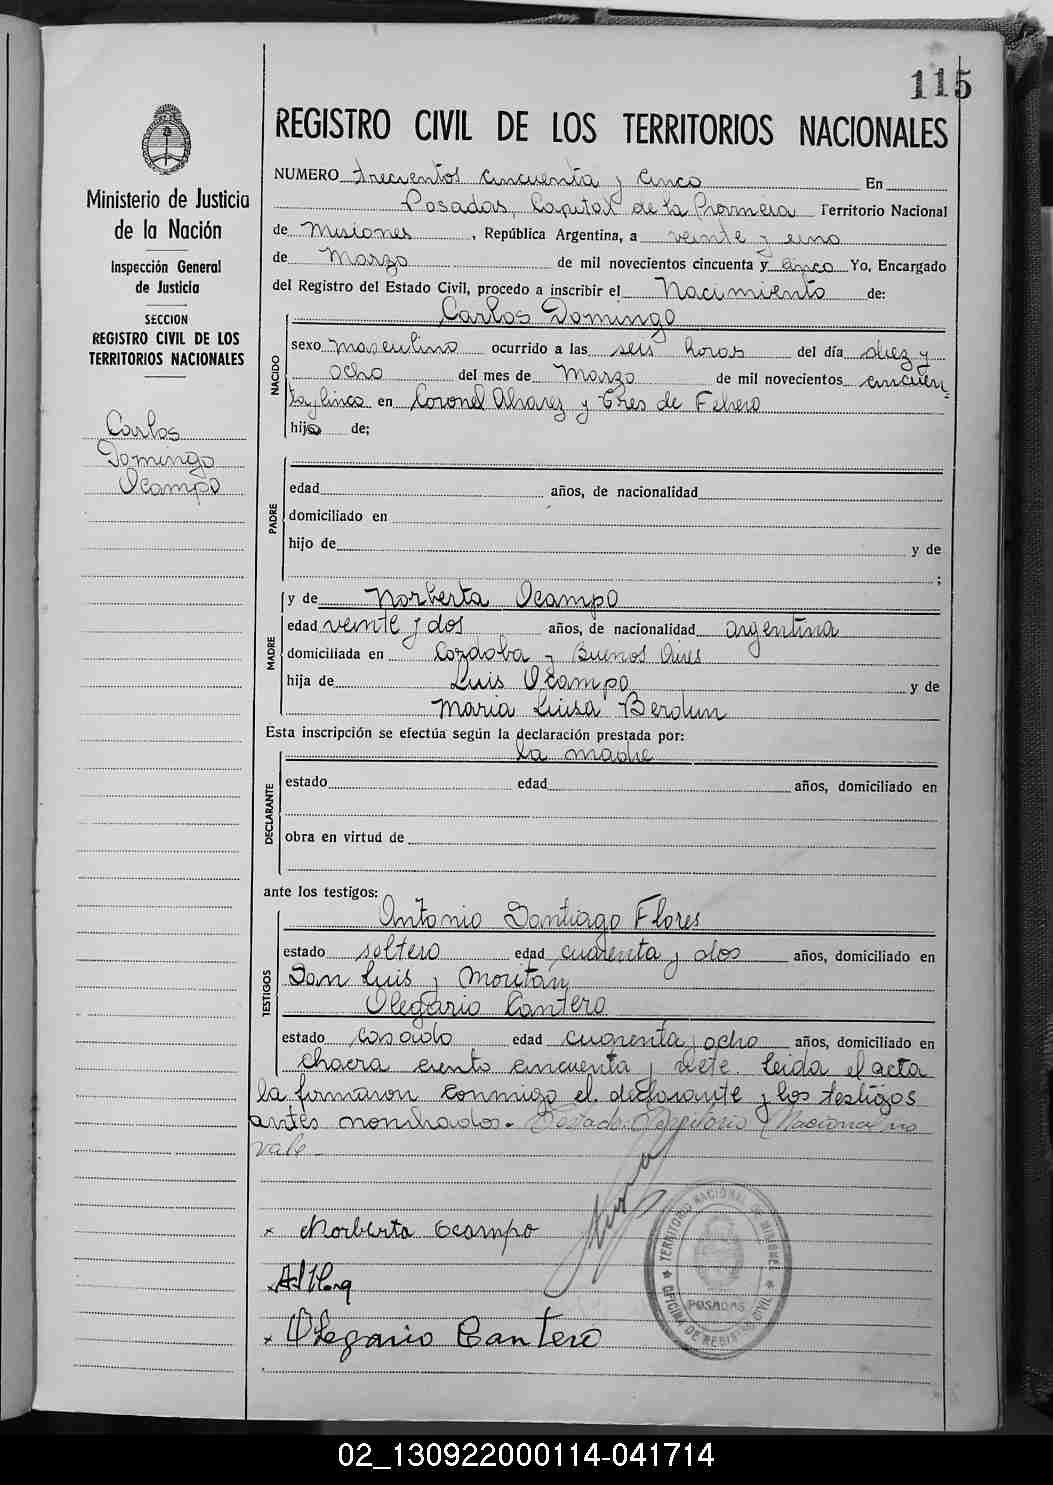 115
REGISTRO CIVIL DE LOS TERRITORIOS NACIONALES
Ministerio de Justicia
de la Nación
Inspección General
de Justicia
SECCION
REGISTRO CIVIL DE LOS
TERRITORIOS NACIONALES
Carlos
Domingo
Ocampo
NUMERO trecientos cincuenta y cinco En
Posadas, Capital de la Provincia Territorio Nacional
de Misiones, República Argentina, a veinte y uno
de Marzo de mil novecientos cincuenta y cinco Yo, Encargado
del Registro del Estado Civil, procedo a inscribir el Nacimiento de:
NACIDO
Carlos Domingo
sexo masculino ocurrido a las seis horas del día diez y
ocho del mes de Marzo de mil novecientos cincuen
ta y cinco en Coronel Alvarez y Tres de Febrero
hijo de;
PADRE
edad años, de nacionalidad
domiciliado en
hijo de y de
;
y de Norberta Ocampo
MADRE
edad veinte y dos años, de nacionalidad argentina
domiciliada en Cordoba y Buenos Aires
hija de Luis Ocampo y de
Maria Luisa Berdun
Esta inscripción se efectúa según la declaración prestada por:
la madre
DECLARANTE
estado edad años, domiciliado en
obra en virtud de
ante los testigos:
TESTIGOS
Antonio Santiago Flores
estado soltero edad cuarenta y dos años, domiciliado en
San Luis y Moritan
Olegario Cantero
estado casado edad cuarenta y ocho años, domiciliado en
chacra ciento cincuenta y siete. Leida el acta
la firmaron conmigo el declarante y los testigos
antes nombrados. Testado: Territorio Nacional no
vale
x Norberta Ocampo
x Olegario Cantero
TERRITORIO NACIONAL DE MISIONES
POSADAS
OFICINA DE REGISTRO CIVIL
02_130922000114-041714